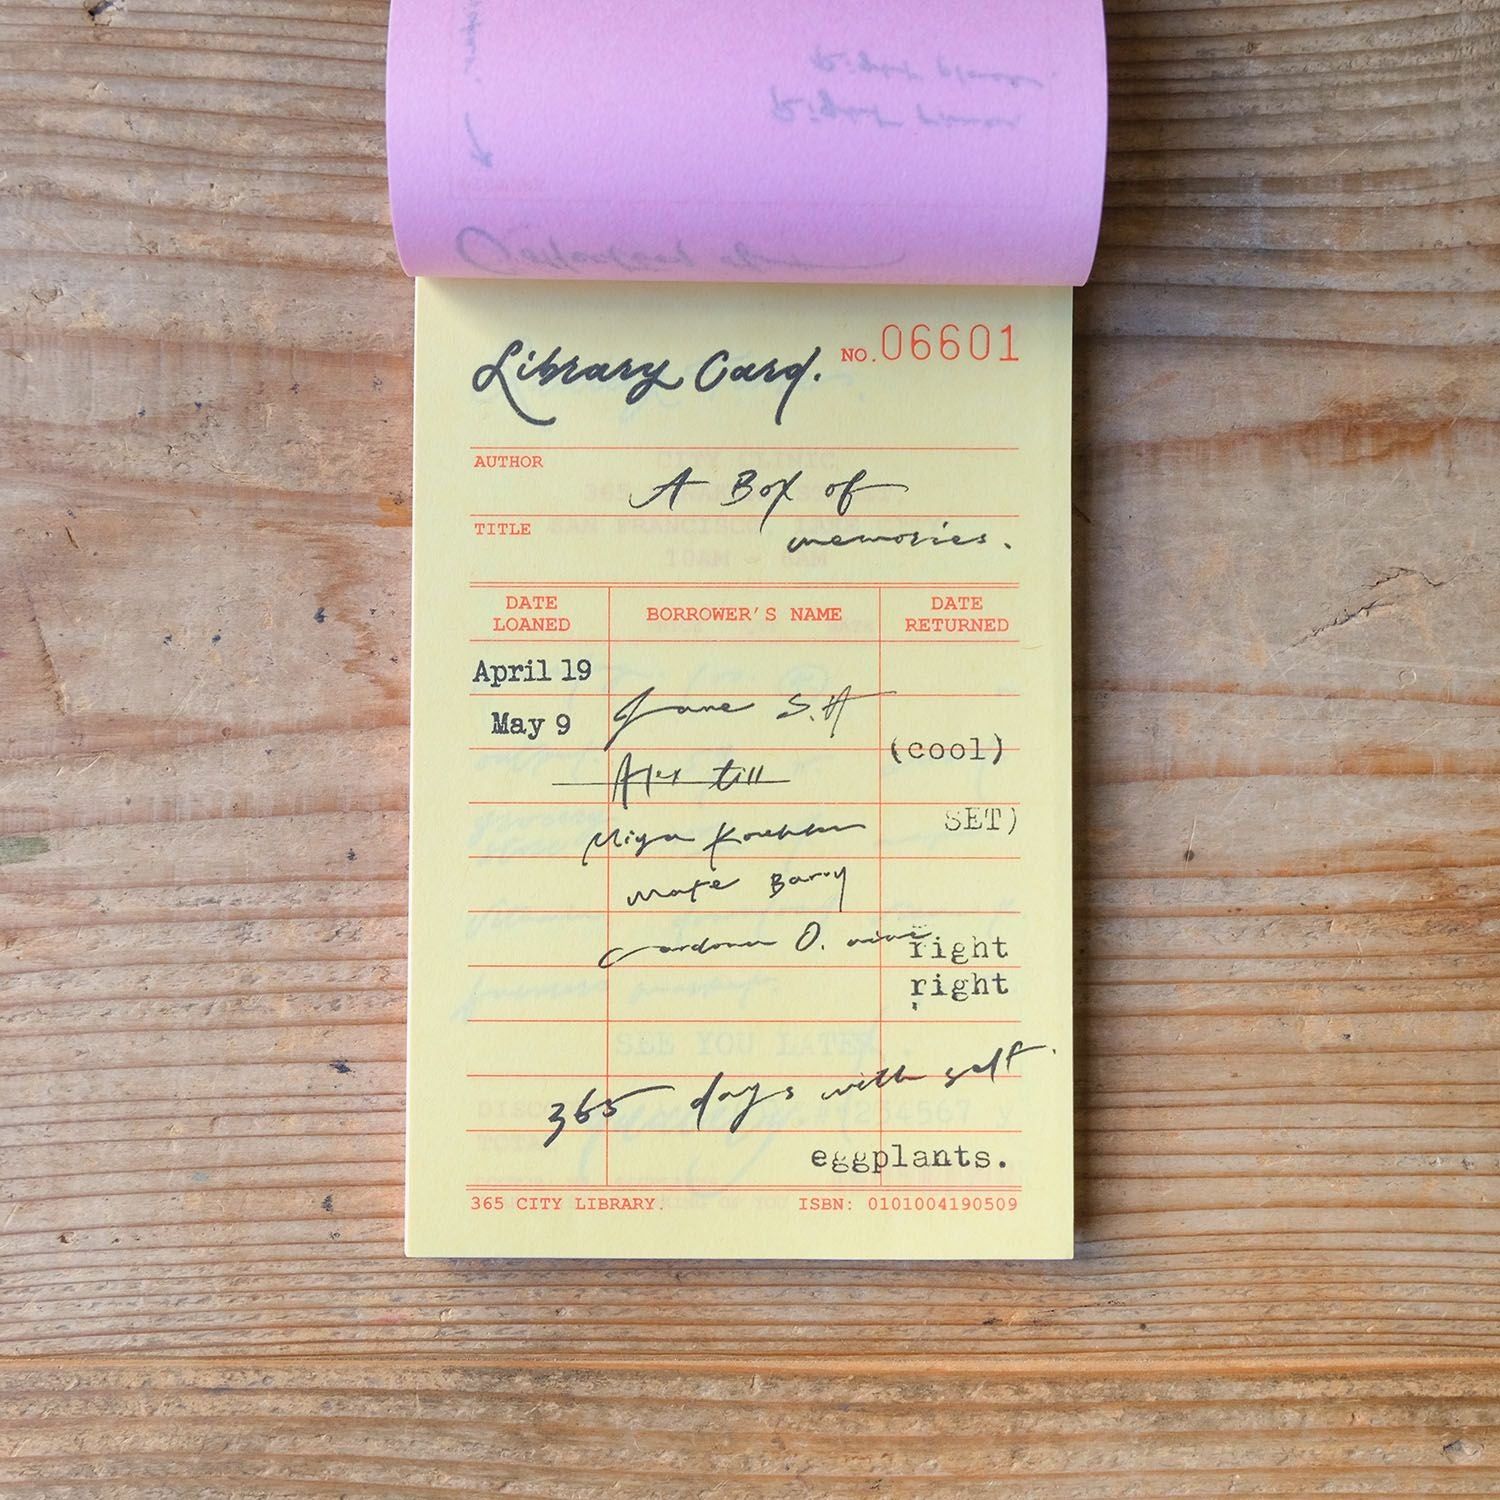 Library Card. NO. 06601
AUTHOR A Box of
TITLE memories.
DATE LOANED BORROWER'S NAME DATE RETURNED
April 19
May 9 Jane S.H
(cool)
Alex till
SET)
Miya
Barry
O.
right
right
365 days with salt.
eggplants.
365 CITY LIBRARY. ISBN: 0101004190509